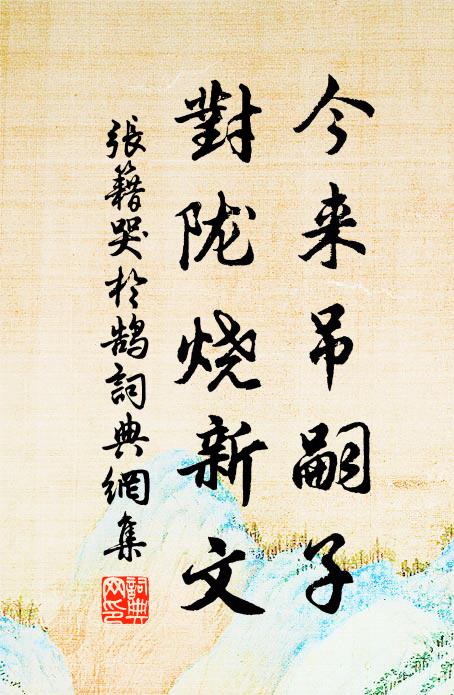 今来吊嗣子
對陇烧新文
張籍哭於鹄詞典網集
詞典
网印